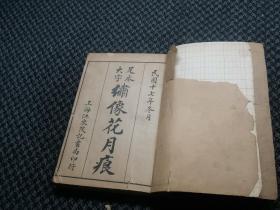 民國十七年冬月
足本
大字
繡像花月痕
上海江東茂記書局印行